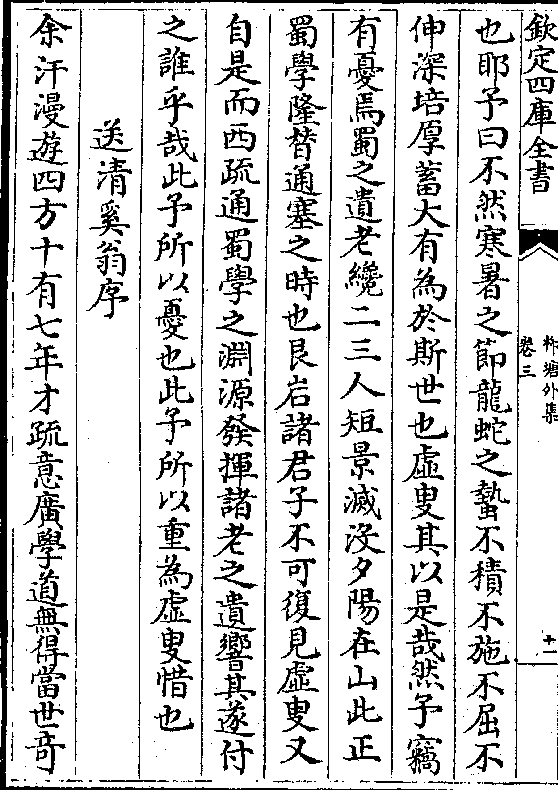 欽定四庫全書
柳塘外集
卷三
十一
也耶予曰不然寒暑之節龍蛇之蟄不積不施不屈不
伸深培厚蓄大有為於斯世也虛叟其以是哉然予竊
有憂焉蜀之遺老纔二三人短景滅沒夕陽在山此正
蜀學隆替通塞之時也艮岩諸君子不可復見虛叟又
自是而西疏通蜀學之淵源發揮諸老之遺響其遂付
之誰乎哉此予所以憂也此予所以重為虛叟惜也
送清奚翁序
余汗漫遊四方十有七年才疏意廣學道無得當世奇